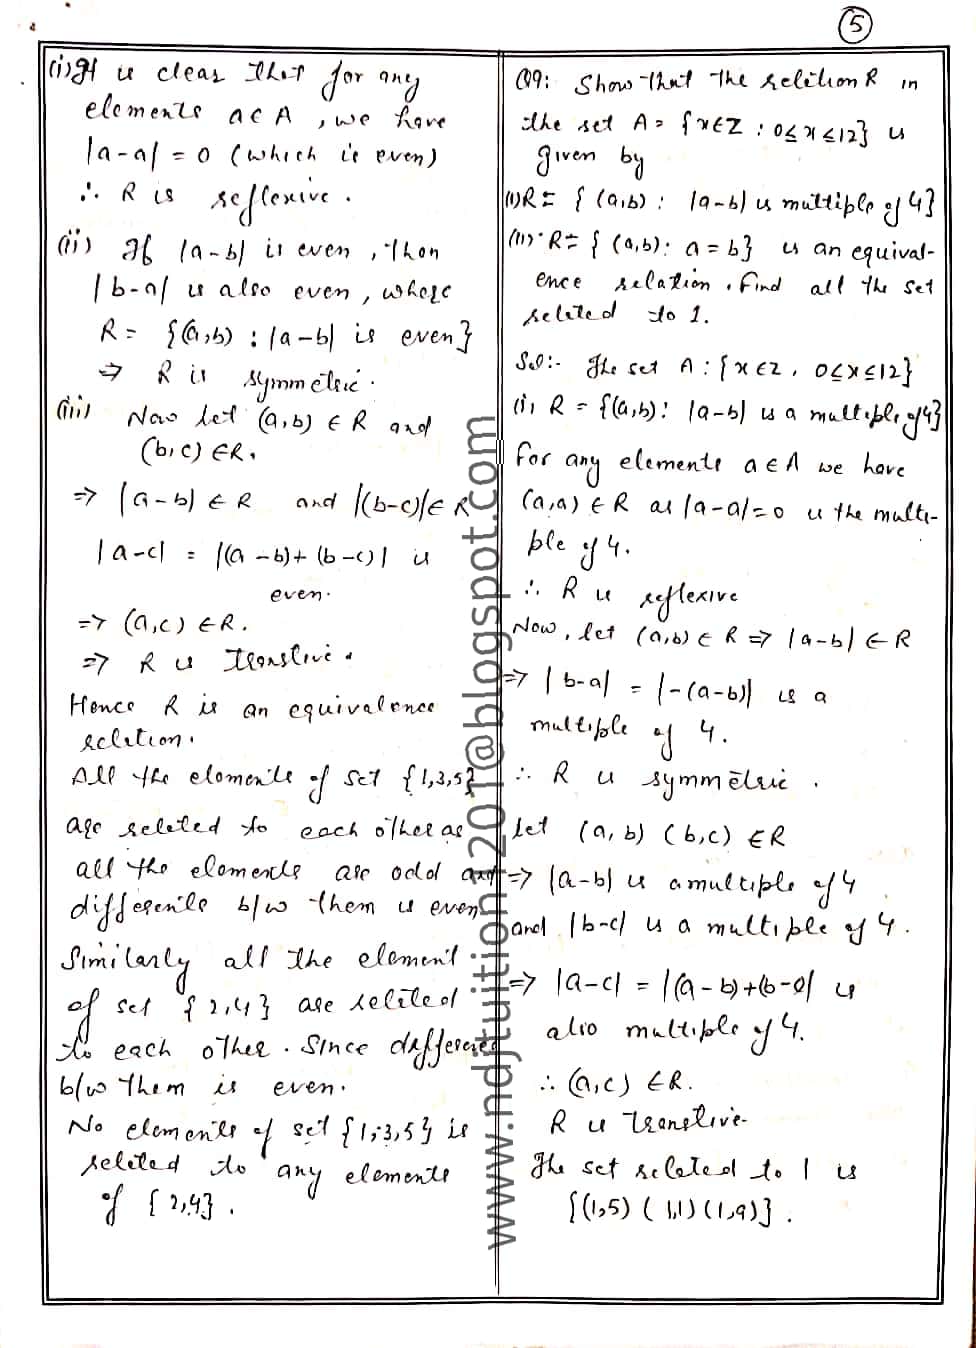 5
(i) It is clear that for any
elements a ∈ A, we have
|a-a| = 0 (which is even)
∴ R is reflexive.
(ii) If |a-b| is even, then
|b-a| is also even, where
R = {(a,b) : |a-b| is even}
⇒ R is symmetric.
(iii) Now let (a,b) ∈ R and
(b,c) ∈ R.
⇒ |a-b| ∈ R and |(b-c)| ∈ R
|a-c| = |(a-b)+(b-c)| is
even.
⇒ (a,c) ∈ R.
⇒ R is Transtive.
Hence R is an equivalence
relation.
All the elements of set {1,3,5}
are releted to each other as
all the elements are odd and
differents b/w them is even
Similarly all the element
of set {2,4} are releted
to each other. Since differenced
b/w them is even.
No elements of set {1,3,5} is
releted to any elements
of {2,4}.
Q9: Show that the relition R in
the set A = {x∈Z : 0≤x≤12} is
given by
(i) R = {(a,b) : |a-b| is multiple of 4}
(ii) R = {(a,b) : a = b} is an equival-
ence relation. Find all the set
releted to 1.
Sol:- The set A : {x∈Z, 0≤x≤12}
(i) R = {(a,b) : |a-b| is a multiple of 4}
For any elements a ∈ A we have
(a,a) ∈ R as |a-a|=0 is the multi-
ple of 4.
∴ R is reflexive
Now, let (a,b) ∈ R ⇒ |a-b| ∈ R
⇒ |b-a| = |-(a-b)| is a
multiple of 4.
∴ R is symmetric.
Let (a,b) (b,c) ∈ R
⇒ |a-b| is a multiple of 4
and |b-c| is a multiple of 4.
⇒ |a-c| = |(a-b)+(b-c)| is
also multiple of 4.
∴ (a,c) ∈ R.
R is Transtive.
The set releted to 1 is
{(1,5) (1,1) (1,9)}.
www.ndjtuition1201@blogspot.com